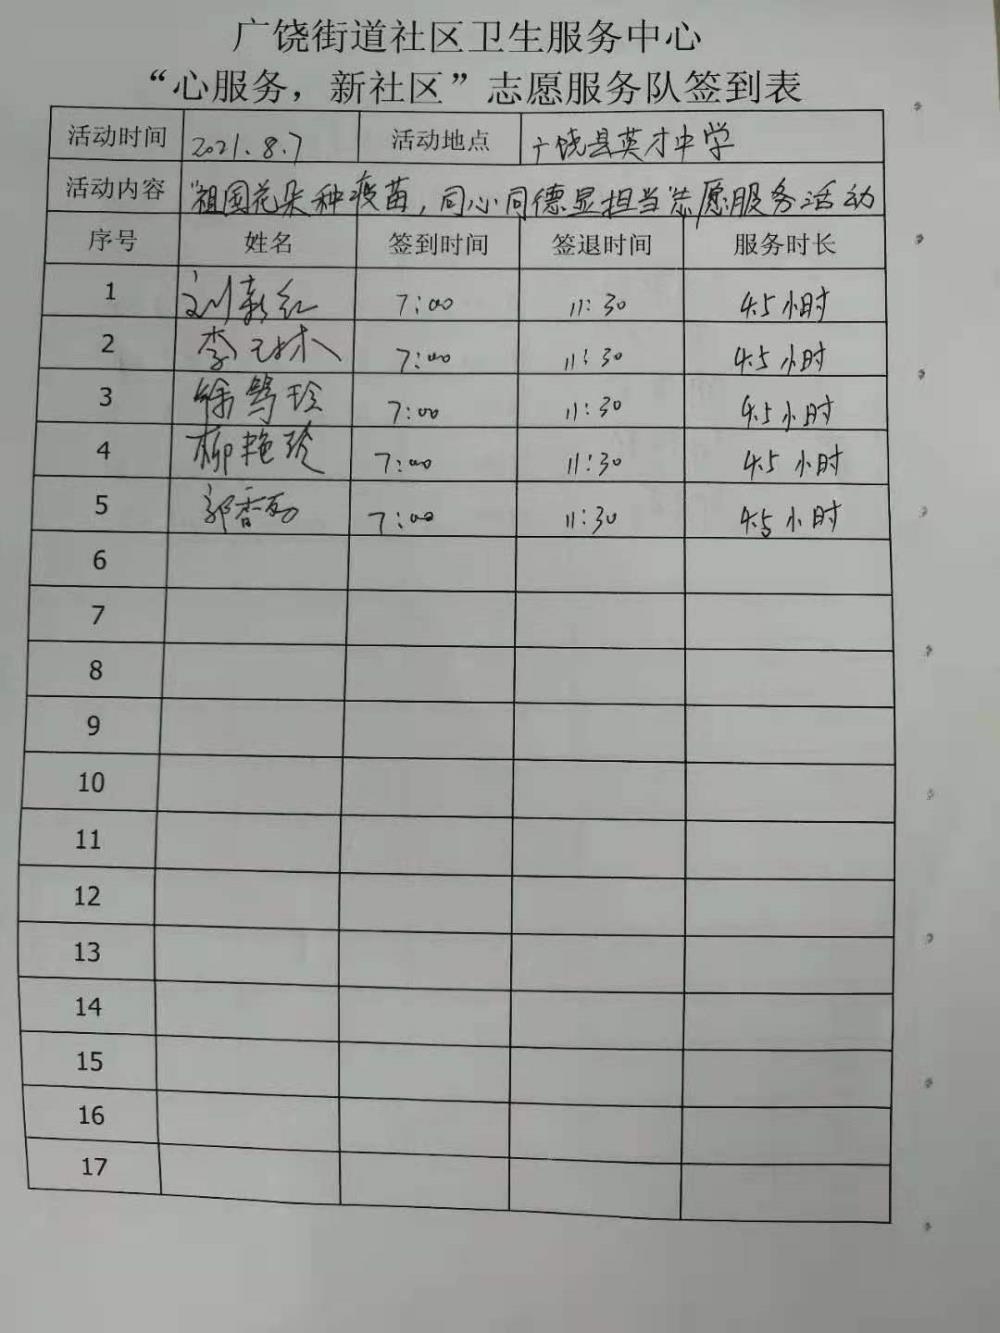 广饶街道社区卫生服务中心
“心服务，新社区”志愿服务队签到表
活动时间 2021.8.7 活动地点 广饶县英才中学
活动内容 “祖国花朵种疫苗，同心同德显担当”志愿服务活动
序号 姓名 签到时间 签退时间 服务时长
1 刘新红 7:00 11:30 4.5小时
2 李 7:00 11:30 4.5小时
3 徐 珍 7:00 11:30 4.5小时
4 柳艳玲 7:00 11:30 4.5小时
5 郭香 7:00 11:30 4.5小时
6
7
8
9
10
11
12
13
14
15
16
17